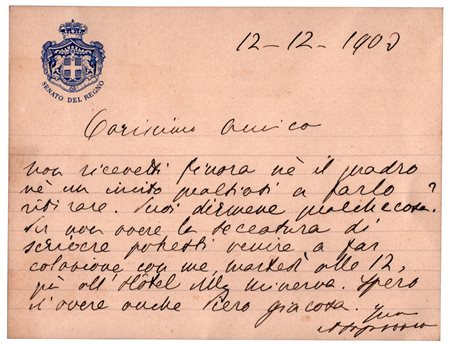 SENATO DEL REGNO
12-12-1903
Carissimo Amico
non ricevetti finora nè il quadro
nè un invito qualsiasi a farlo
ritirare. Puoi dirmene qualchecosa?
Per non avere la seccatura di
scrivere potresti venire a far
colazione con me, martedì alle 12,
all'Hôtel della Minerva. Spero
d'avere anche Piero Giacosa.